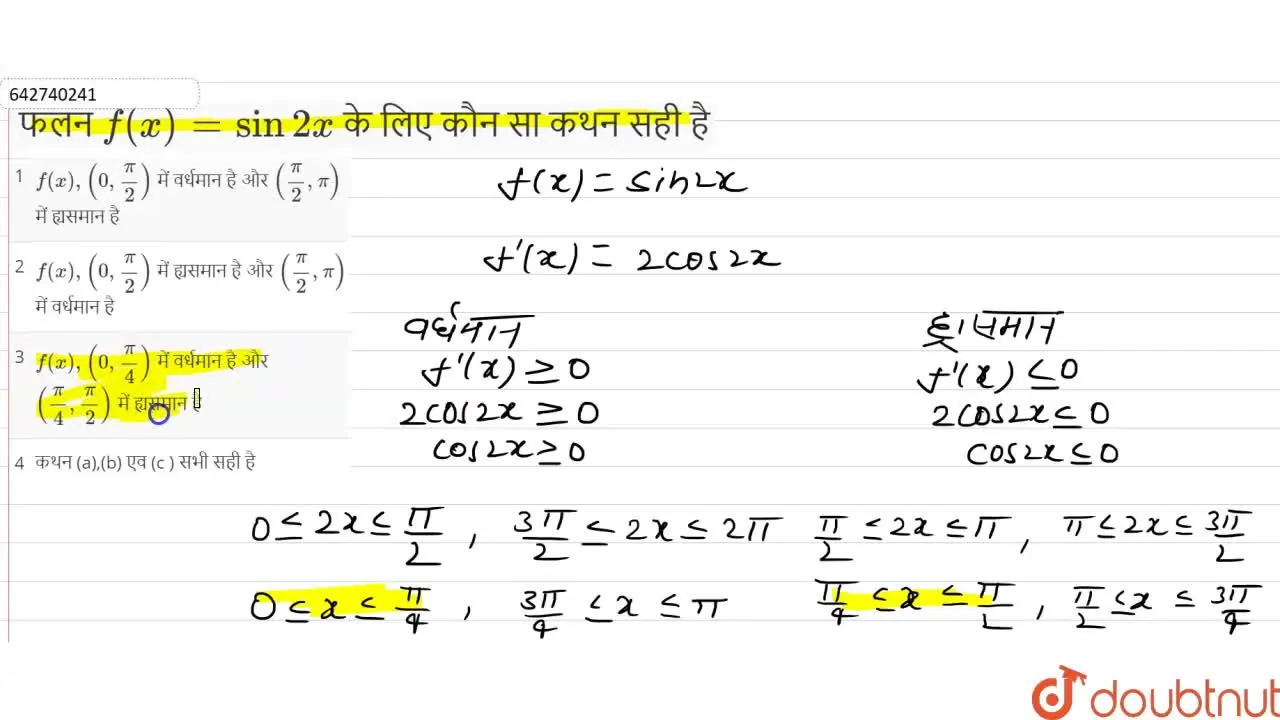 642740241
फलन f(x) = sin 2x के लिए कौन सा कथन सही है
1 f(x), (0, π/2) में वर्धमान है और (π/2, π)
में ह्यसमान है
2 f(x), (0, π/2) में ह्यसमान है और (π/2, π)
में वर्धमान है
3 f(x), (0, π/4) में वर्धमान है और
(π/4, π/2) में ह्यसमान है
4 कथन (a),(b) एव (c ) सभी सही है
f(x) = sin2x
f'(x) = 2cos2x
वर्धमान
f'(x) ≥ 0
2cos2x ≥ 0
cos2x ≥ 0
ह्रासमान
f'(x) ≤ 0
2cos2x ≤ 0
cos2x ≤ 0
0 ≤ 2x ≤ π/2 , 3π/2 ≤ 2x ≤ 2π
0 ≤ x ≤ π/4 , 3π/4 ≤ x ≤ π
π/2 ≤ 2x ≤ π , π ≤ 2x ≤ 3π/2
π/4 ≤ x ≤ π/2 , π/2 ≤ x ≤ 3π/4
doubtnut